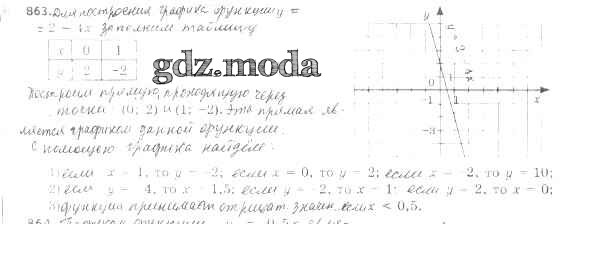 863. Для построения графика функции y =
= 2 − 4x заполним таблицу
x 0 1
y 2 −2
gdz.moda
Построим прямую, проходящую через
точки (0; 2) и (1; −2). Эта прямая яв-
ляется графиком данной функции.
С помощью графика найдём:
1) если x = 1, то y = −2; если x = 0, то y = 2; если x = −2, то y = 10;
2) если y = −4, то x = 1,5; если y = −2, то x = 1; если y = 2, то x = 0;
3) функция принимает отрицат. значен. если x < 0,5.
y
−1 1 x
−3